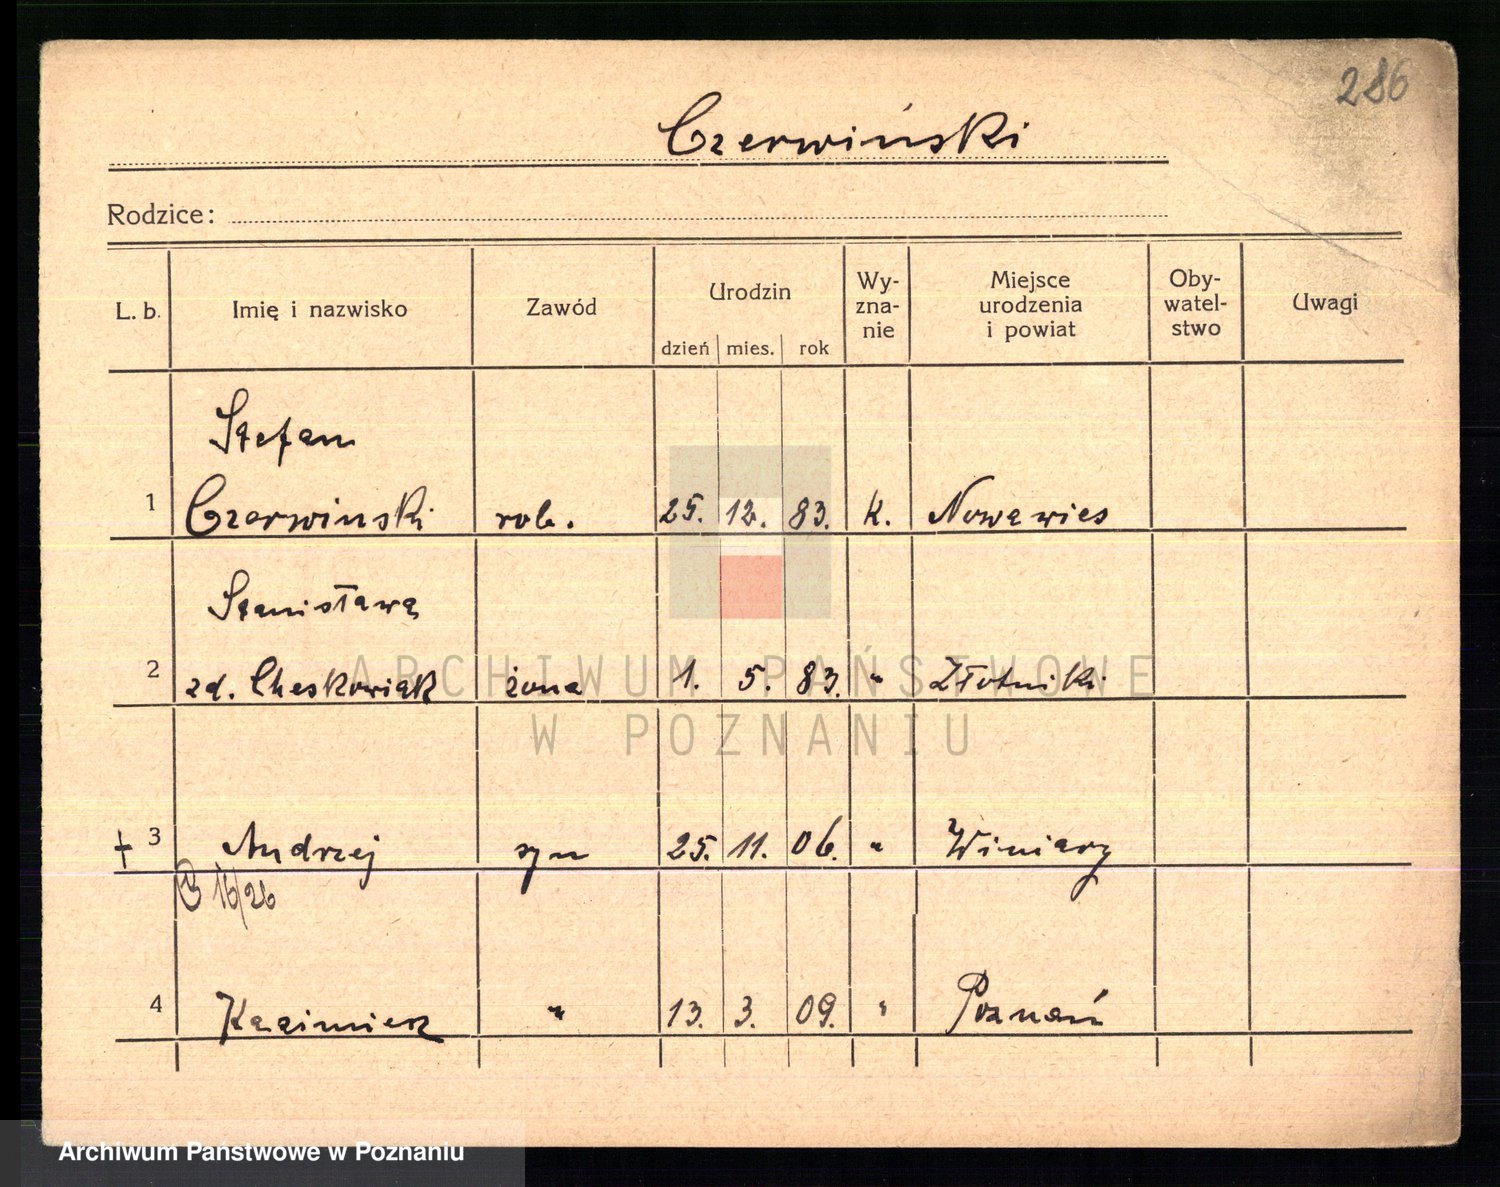 286
Czerwiński
Rodzice:
L. b. Imię i nazwisko Zawód Urodzin dzień mies. rok Wy-zna-nie Miejsce urodzenia i powiat Oby-watel-stwo Uwagi
Stefan
1 Czerwinski rob. 25. 12. 83. k. Nowawies
Stanisława
2 zd. Cheskowiak żona 1. 5. 83. " Złotniki
3 Andrzej syn 25. 11. 06. " Winiary
16/26
4 Kazimierz " 13. 3. 09. " Poznań
ARCHIWUM PAŃSTWOWE
W POZNANIU
Archiwum Państwowe w Poznaniu